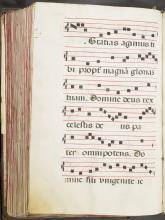 Gratias agimus ti
bi propt magnā gloriā
tuam. Domine deus rex
celestis de us pa
ter omnipotens. Do
mine fili unigenite ie